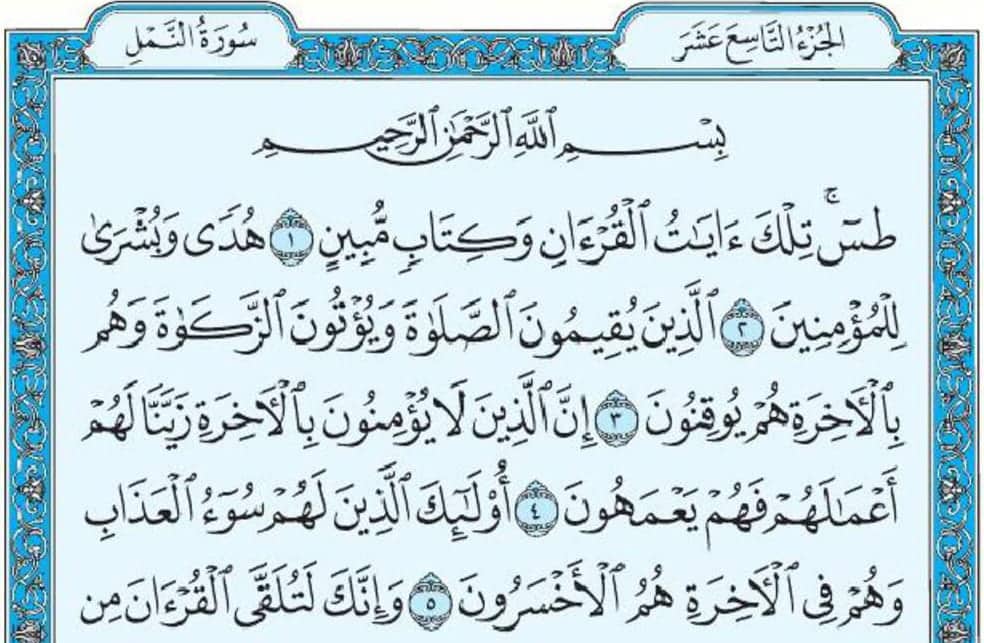 الجُزْءُ التَّاسِعَ عَشَرَ
سُورَةُ النَّمْلِ
بِسْمِ ٱللَّهِ ٱلرَّحْمَٰنِ ٱلرَّحِيمِ
طسٓۚ تِلْكَ ءَايَٰتُ ٱلْقُرْءَانِ وَكِتَابٍ مُّبِينٍ ١ هُدًى وَبُشْرَىٰ
لِلْمُؤْمِنِينَ ٢ ٱلَّذِينَ يُقِيمُونَ ٱلصَّلَوٰةَ وَيُؤْتُونَ ٱلزَّكَوٰةَ وَهُم
بِٱلْأَخِرَةِ هُمْ يُوقِنُونَ ٣ إِنَّ ٱلَّذِينَ لَا يُؤْمِنُونَ بِٱلْأَخِرَةِ زَيَّنَّا لَهُمْ
أَعْمَٰلَهُمْ فَهُمْ يَعْمَهُونَ ٤ أُوْلَٰٓئِكَ ٱلَّذِينَ لَهُمْ سُوٓءُ ٱلْعَذَابِ
وَهُمْ فِى ٱلْأَخِرَةِ هُمُ ٱلْأَخْسَرُونَ ٥ وَإِنَّكَ لَتُلَقَّى ٱلْقُرْءَانَ مِن